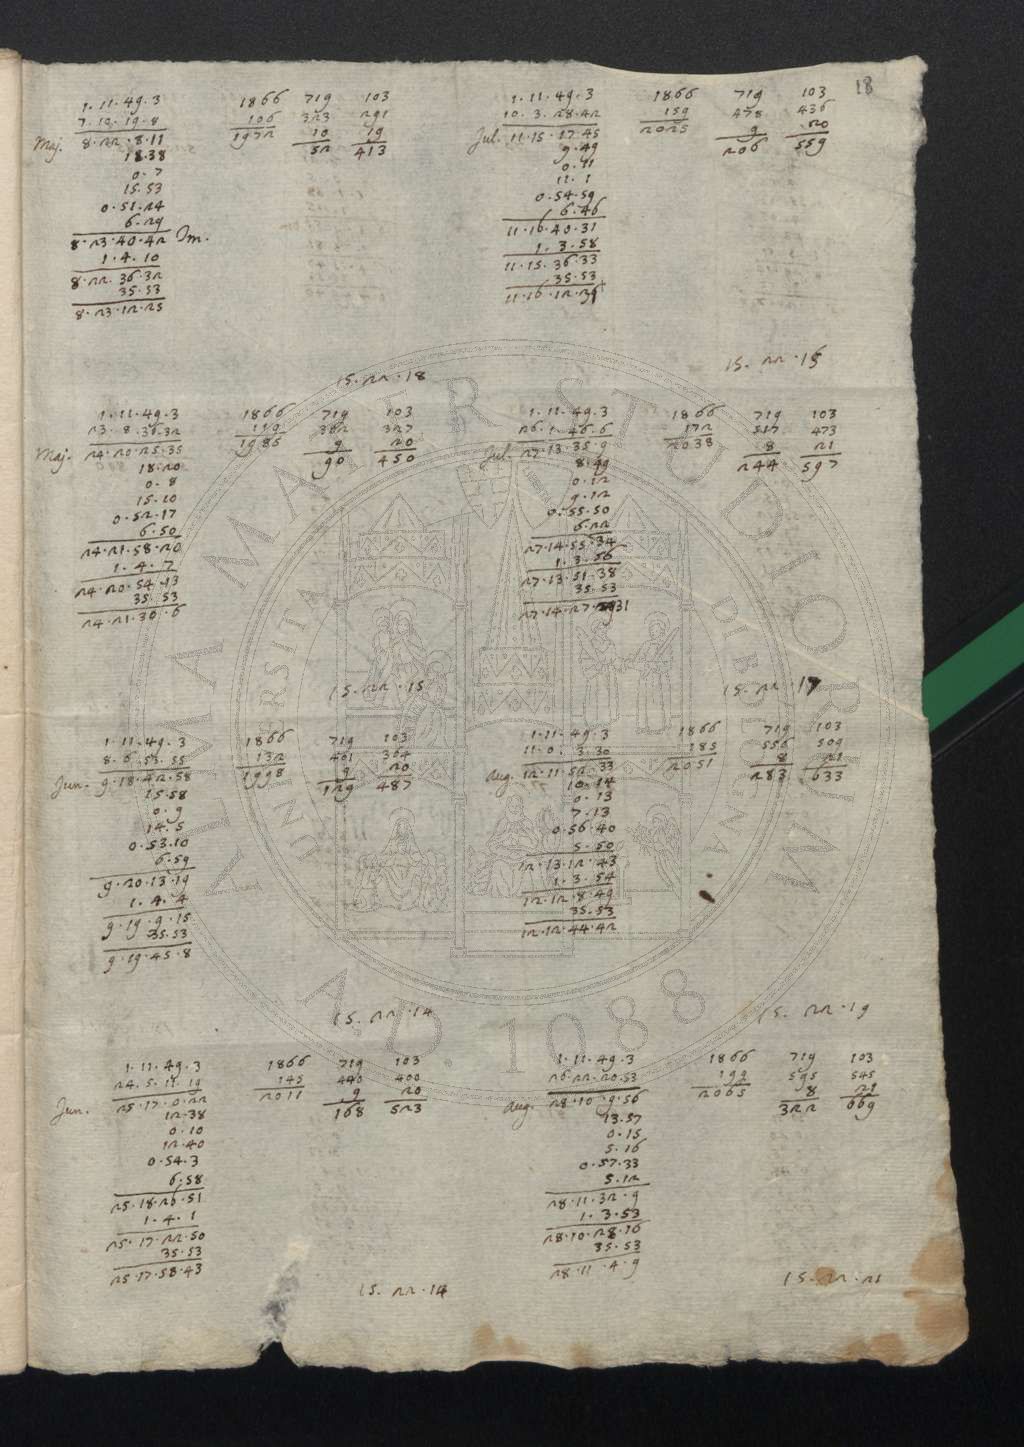 18
1.11.49.3 1866 719 103
7.10.19.8 106 323 291
Maj. 8.22.8.11 1972 10 19
18.38 52 413
0.7
15.53
0.51.24
6.29
8.23.40.42 Im.
1.4.10
8.22.36.32
35.53
8.23.12.25
15.22.18
1.11.49.3 1866 719 103
23.8.36.32 119 362 327
Maj. 24.20.25.35 1985 9 20
18.20 90 450
0.8
15.10
0.52.17
6.50
24.21.58.20
1.4.7
24.20.54.13
35.53
24.21.30.6
15.22.15
1.11.49.3 1866 719 103
8.6.53.55 132 401 364
Jun. 9.18.42.58 1998 9 20
15.58 129 487
0.9
14.5
0.53.10
6.59
9.20.13.19
1.4.4
9.19.9.15
35.53
9.19.45.8
15.22.14
1.11.49.3 1866 719 103
24.5.11.19 145 440 400
Jun. 25.17.0.22 2011 9 20
12.38 168 523
0.10
12.40
0.54.3
6.58
25.18.26.51
1.4.1
25.17.22.50
35.53
25.17.58.43
15.22.14
1.11.49.3 1866 719 103
10.3.28.42 159 478 436
Jul. 11.15.17.45 2025 9 20
9.49 206 559
0.11
11.1
0.54.59
6.46
11.16.40.31
1.3.58
11.15.36.33
35.53
15.22.15
1.11.49.3 1866 719 103
26.1.46.6 172 517 473
Jul. 27.13.35.9 2038 8 21
8.49 244 597
0.12
9.12
0.55.50
6.22
27.14.55.34
1.3.56
27.13.51.38
35.53
27.14.27.31
15.22.17
1.11.49.3 1866 719 103
11.0.3.30 185 556 509
Aug. 12.11.52.33 2051 8 21
10.14 283 633
0.13
7.13
0.56.40
5.50
12.13.12.43
1.3.54
12.12.8.49
35.53
12.12.44.42
15.22.19
1.11.49.3 1866 719 103
26.22.20.53 199 595 545
Aug. 28.10.9.56 2065 8 21
13.57 322 669
0.15
5.16
0.57.33
5.12
28.11.32.9
1.3.53
28.10.28.16
35.53
28.11.4.9
15.22.21
ALMA MATER STUDIORUM
UNIVERSITA DI BOLOGNA
A.D. 1088